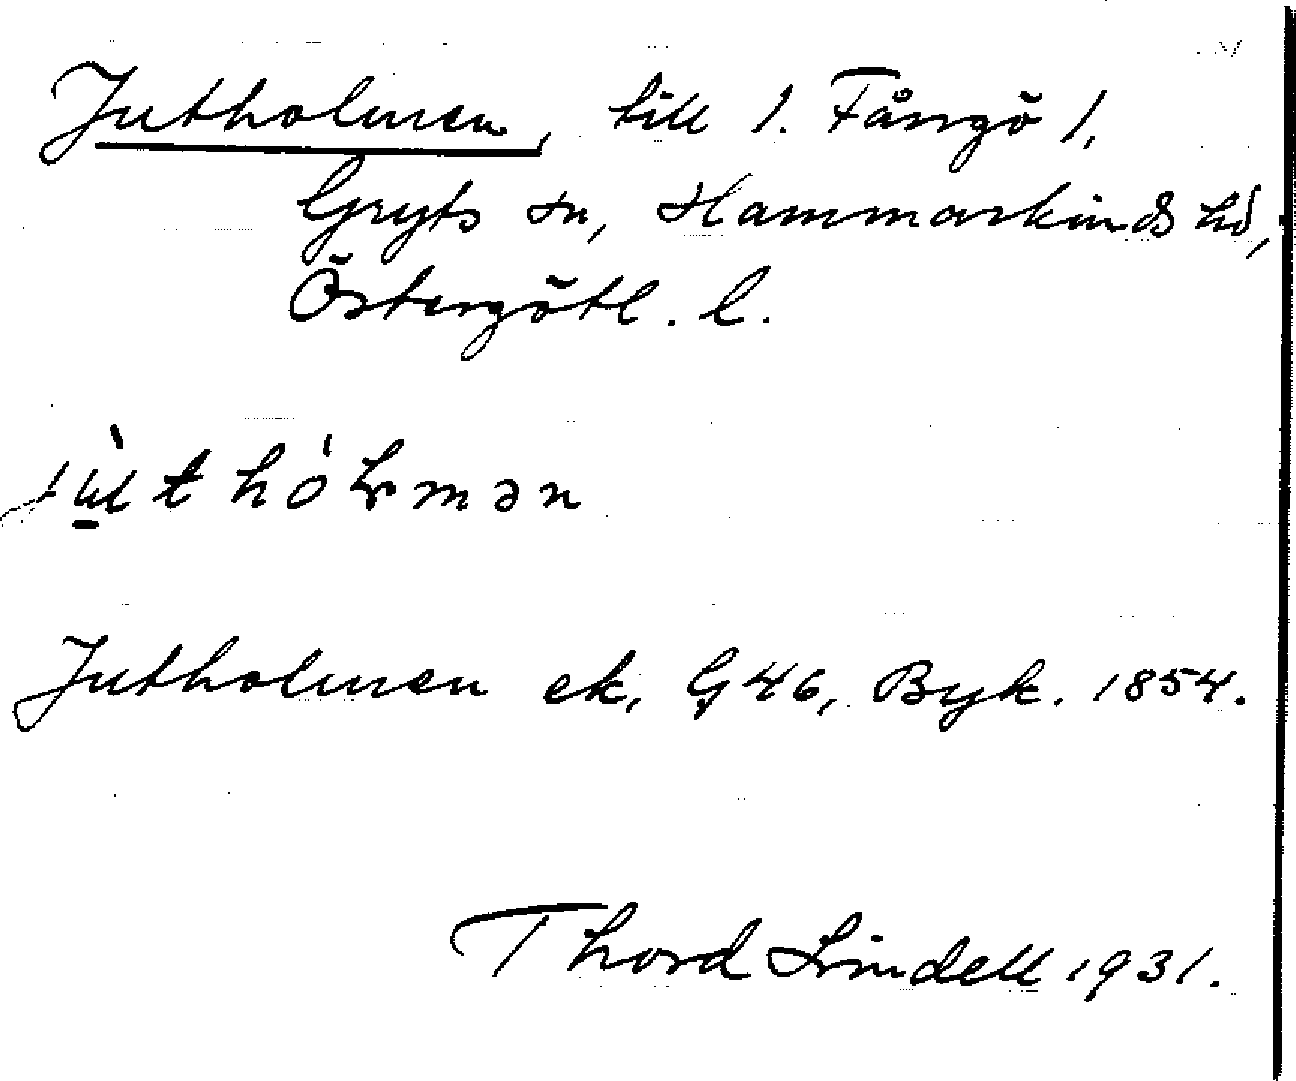 Jutholmen, till 1. Fångö 1,
Gryts sn, Hammarkinds hd,
Östergötl. l.
Jutholmen ek, G 46, Byk. 1854.
Thord Lindell 1931.